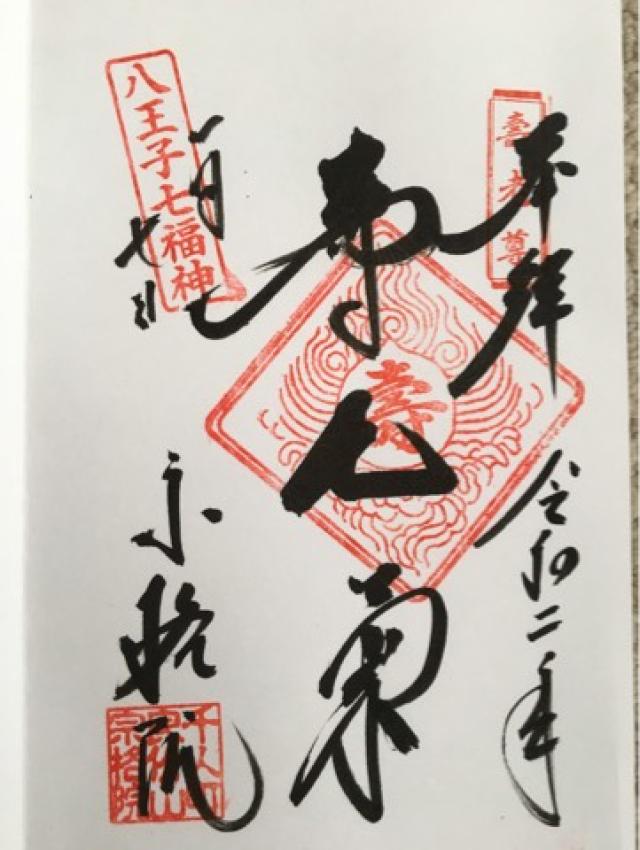 奉拝
令和二年
壽老尊
壽
一月
七日
八王子七福神
宗格院
千人町
宗格院